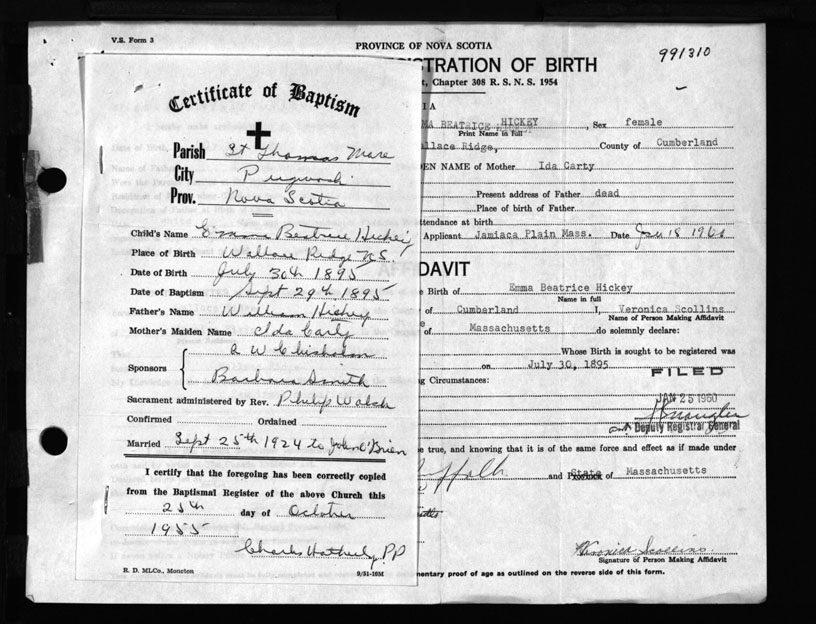 V.S. Form 3
PROVINCE OF NOVA SCOTIA
991310
STRATION OF BIRTH
t, Chapter 308 R. S. N. S. 1954
IA
MA BEATRICE HICKEY, Sex female
Print Name in full
allace Ridge, County of Cumberland
EN NAME of Mother Ida Carty
Present address of Father dead
Place of birth of Father
ttendance at birth
Applicant Jamiaca Plain Mass. Date Jan 18 1960
DAVIT
e Birth of Emma Beatrice Hickey
Name in full
of Cumberland I, Veronica Scollins
Name of Person Making Affidavit
of Massachusetts do solemnly declare:
Whose Birth is sought to be registered was
on July 30, 1895
g Circumstances:
FILED
JAN 25 1960
Deputy Registrar General
e true, and knowing that it is of the same force and effect as if made under
Suffolk and Province State of Massachusetts
Veronica Scollins
Signature of Person Making Affidavit
mentary proof of age as outlined on the reverse side of this form.
Certificate of Baptism
Parish St Thomas More
City Pugwash
Prov. Nova Scotia
Child's Name Emma Beatrice Hickey
Place of Birth Wallace Ridge N.S.
Date of Birth July 30th 1895
Date of Baptism Sept 29th 1895
Father's Name William Hickey
Mother's Maiden Name Ida Carty
Sponsors { A W Chisholm
Barbara Smith
Sacrament administered by Rev. Philip Walsh
Confirmed Ordained
Married Sept 25th 1924 to John O'Brien
I certify that the foregoing has been correctly copied
from the Baptismal Register of the above Church this
25th day of October
1955
Charles Hatherly, P.P
R. D. MLCo., Moncton 9/51-10M